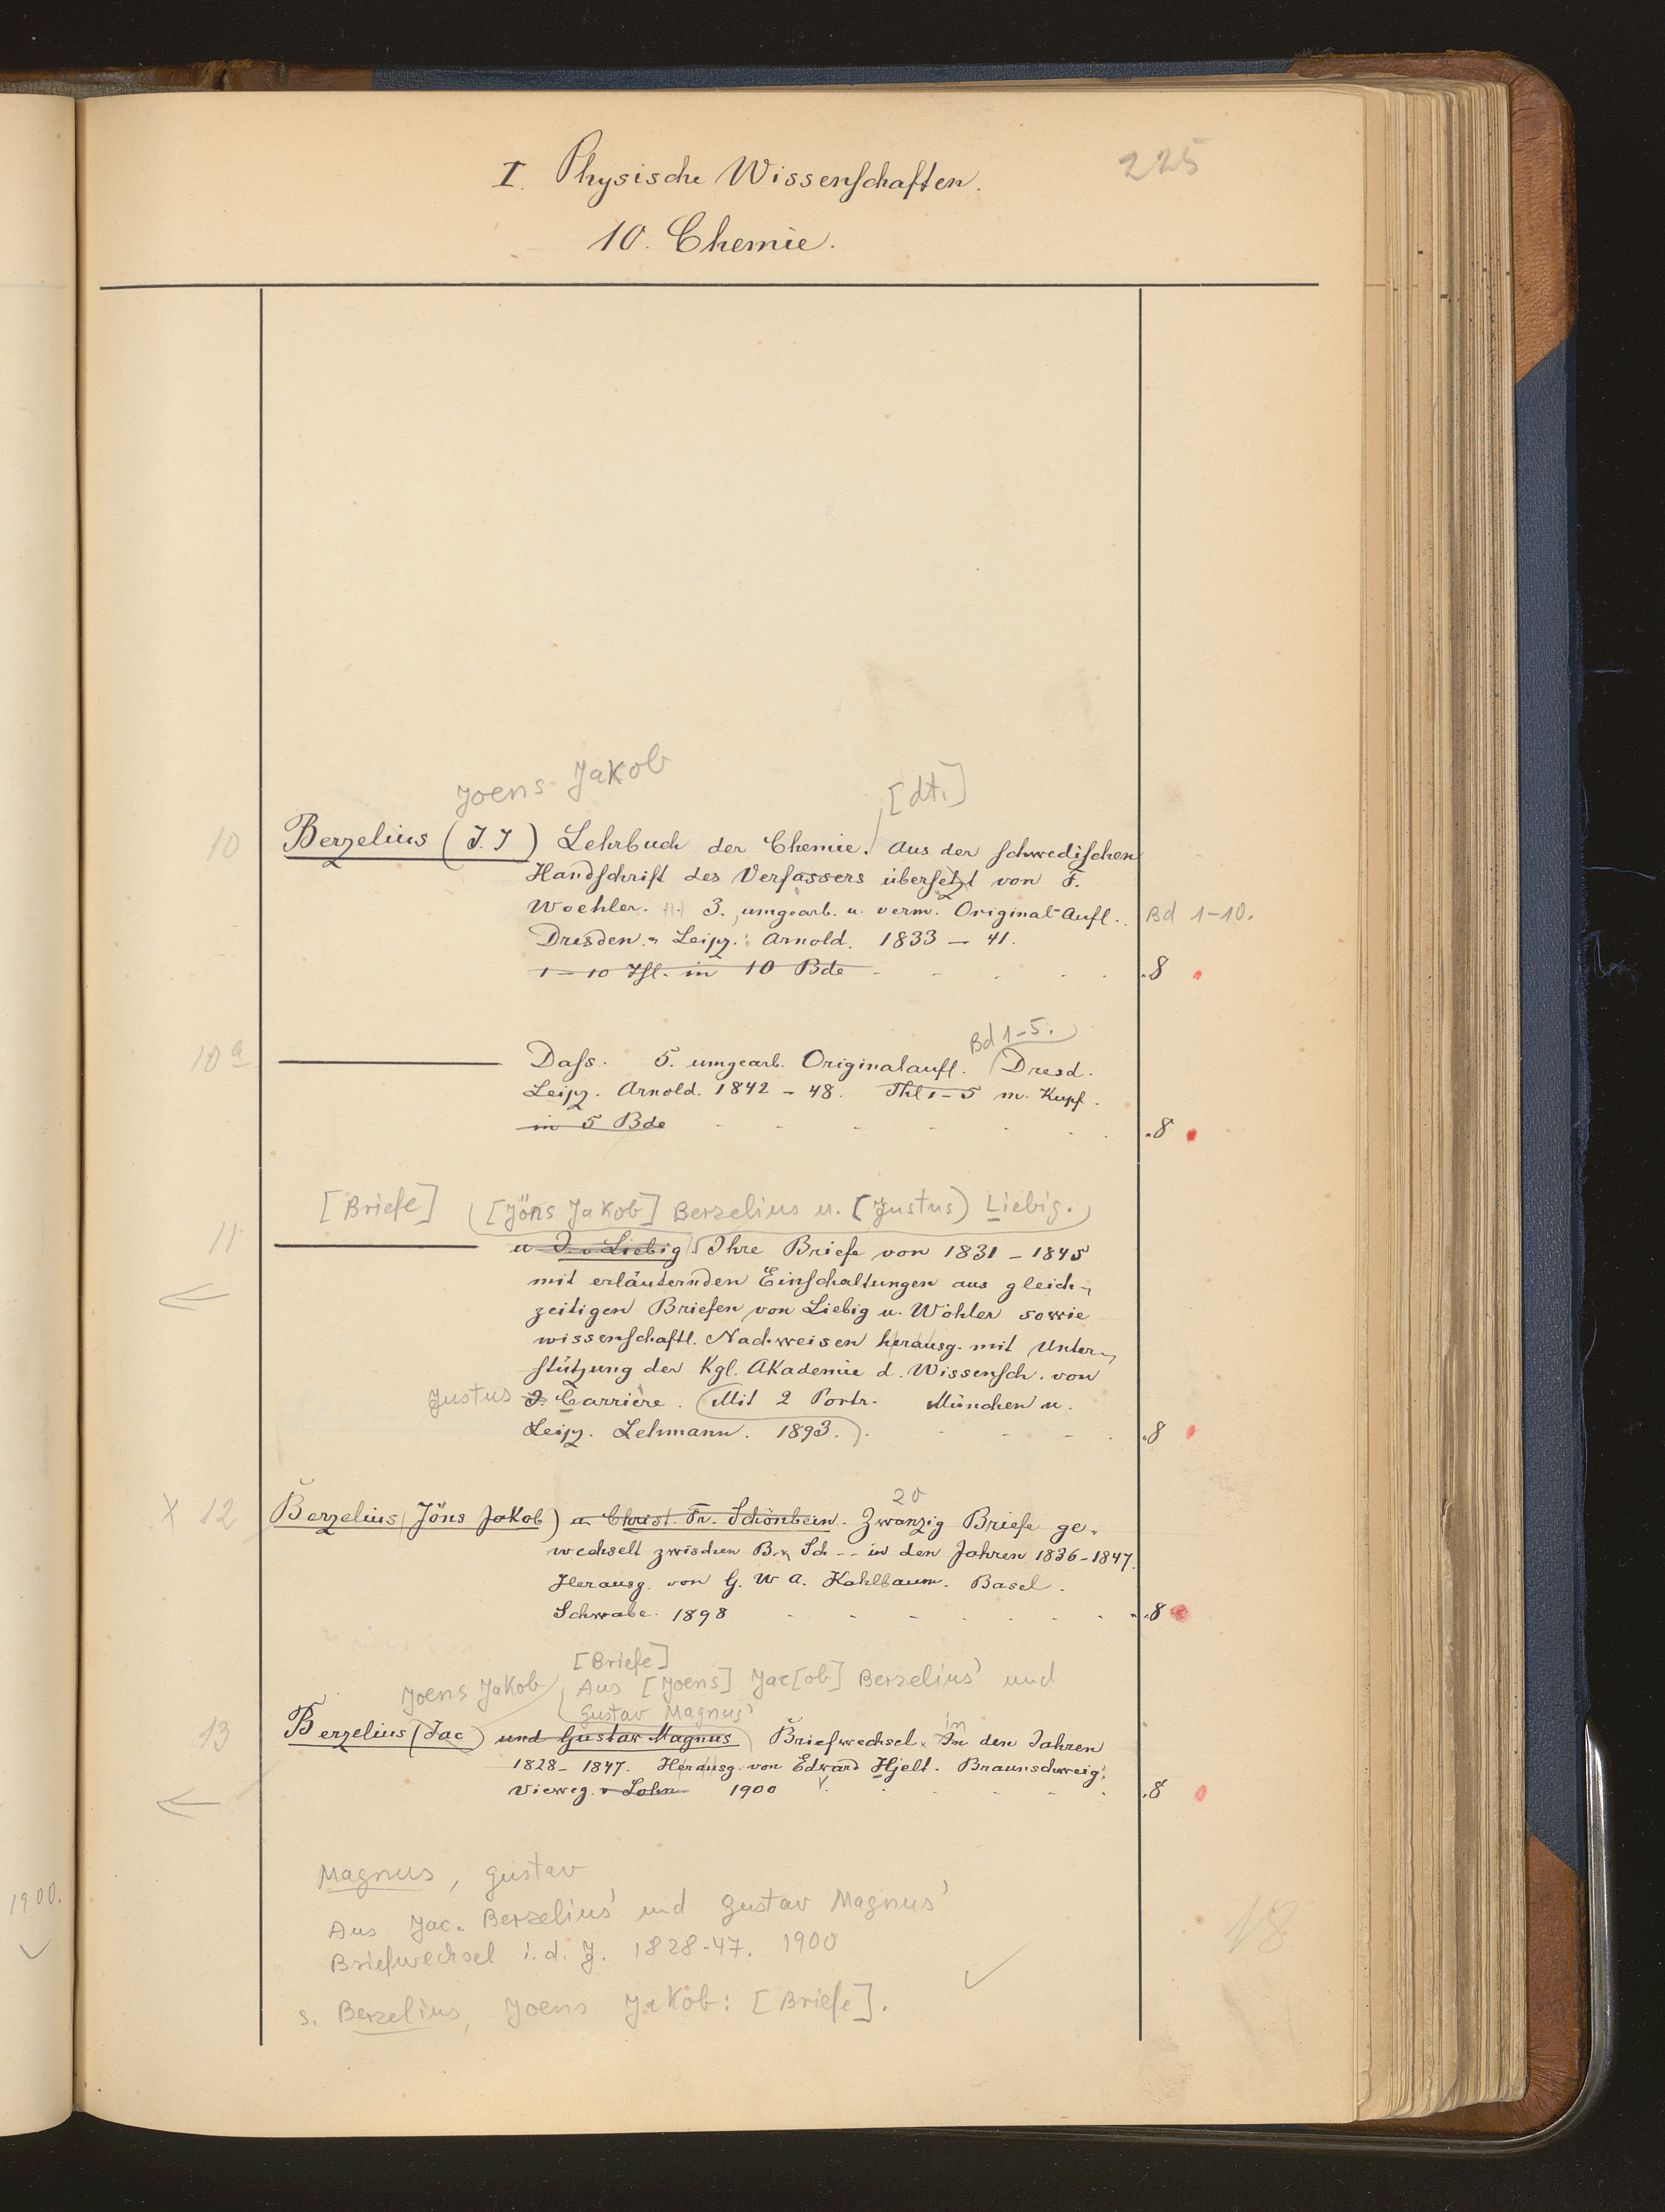 225
I. Physische Wissenschaften.
10. Chemie.
Joens Jakob
[dt.]
10 Berzelius (J. J) Lehrbuch der Chemie. Aus der schwedischen
Handschrift des Verfassers übersetzt von F.
Woehler. 3. umgearb. u. verm. Original-Aufl. Bd 1-10.
Dresden u Leipz.: Arnold. 1833 — 41.
1 – 10 Thl. in 10 Bde - - - . 8
Bd 1-5.
10a ——— Dass. 5. umgearb. Originalaufl. Dresd.
Leipz. Arnold. 1842 - 48. Thl 1-5 m. Kupf.
in 5 Bde - - - - - - . 8
[Briefe] ([Jöns Jakob] Berzelius u. [Justus] Liebig.)
11 ——— u J. v Liebig. Ihre Briefe von 1831 - 1845
mit erläuternden Einschaltungen aus gleich-
zeitigen Briefen von Liebig u. Wöhler sowie
wissenschaftl. Nachweisen herausg. mit Unter-
stützung der Kgl. Akademie d. Wissensch. von
Justus J. Carrière. (Mit 2 Portr. München u.
Leipz. Lehmann. 1893.) - - - . 8
20
X 12 Berzelius (Jöns Jakob) u. Christ. Fr. Schönbein. Zwanzig Briefe ge-
wechselt zwischen B. u Sch -- in den Jahren 1836-1847.
Herausg. von G. W A. Kahlbaum. Basel.
Schwabe. 1898 - - - - - - . 8
[Briefe]
Joens Jakob Aus [Joens] Jac[ob] Berzelius' und
Gustav Magnus'
im
13 Berzelius (Jac) und Gustav Magnus Briefwechsel. In den Jahren
1828 - 1847. Herausg. von Edward Hjelt. Braunschweig:
Vieweg u Sohn 1900 - - - . 8
Magnus, Gustav
Aus Jac. Berzelius' und Gustav Magnus'
Briefwechsel i. d. J. 1828-47. 1900
s. Berzelius, Joens Jakob: [Briefe].
18
1900.